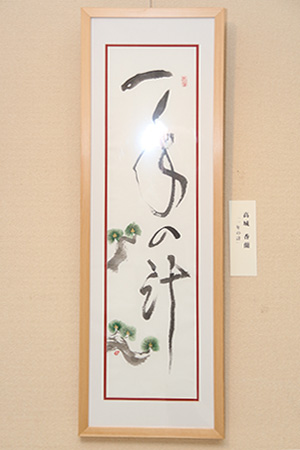 一年の計
高城 香